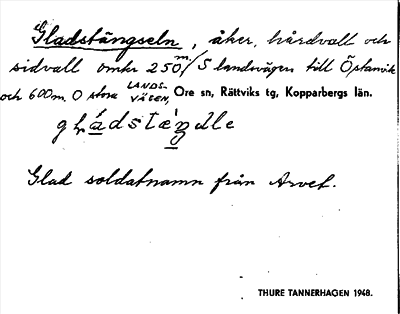 Gladstängseln, åker, hårdvall och
sidvall omkr 250 m. S landsvägen till Östanvik
och 600 m. O stora LANDS-
VÄGEN, Ore sn, Rättviks tg, Kopparbergs län.
Glad soldatnamn från Arvet.
THURE TANNERHAGEN 1948.